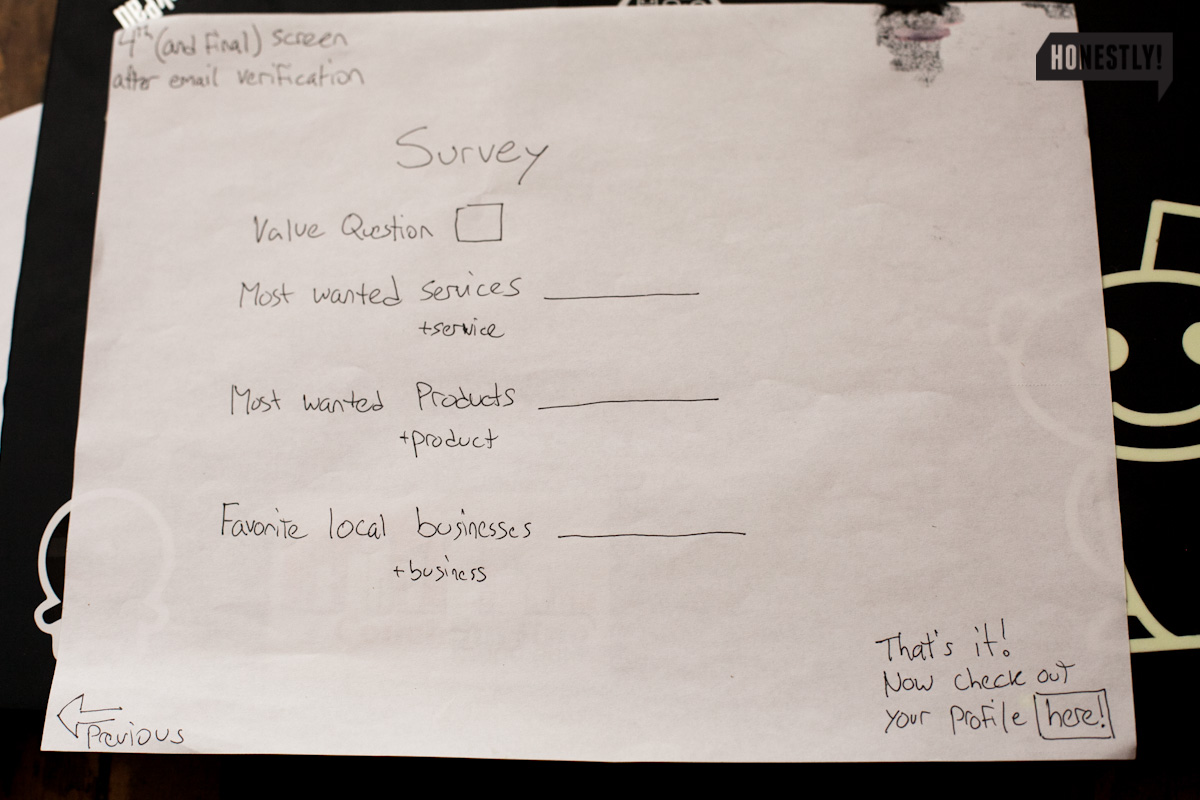 4th (and Final) screen
after email verification
HONESTLY!
Survey
Value Question
Most wanted services
+service
Most wanted Products
+product
Favorite local businesses
+business
That's it!
Now check out
your profile here!
Previous